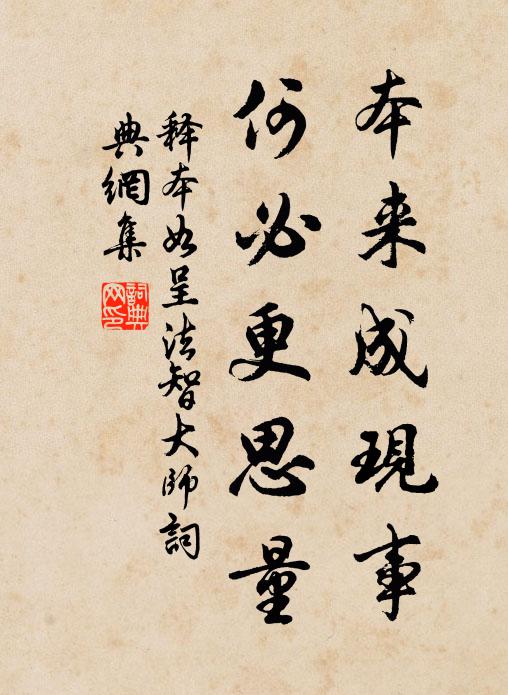 本来成現事
何必更思量
释本如呈法智大师詞
典網集
詞典网印